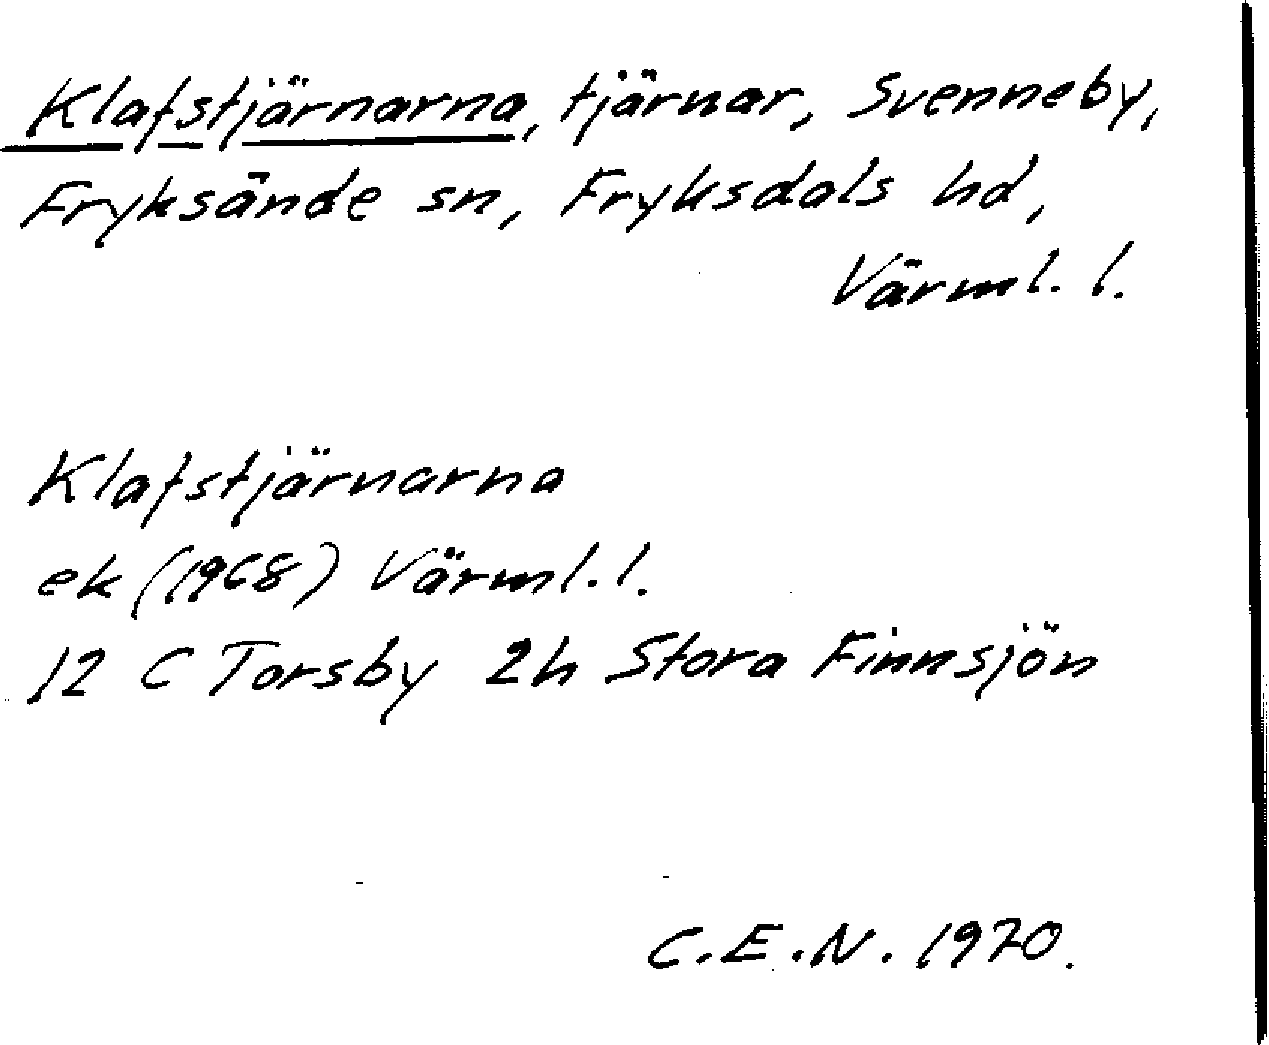 Klafstjärnarna, tjärnar, Svenneby,
Fryksände sn, Fryksdals hd,
Värml. l.
Klafstjärnarna
ek (1968) Värml. l.
12 C Torsby 2h Stora Finnsjön
C.E.N. 1970.